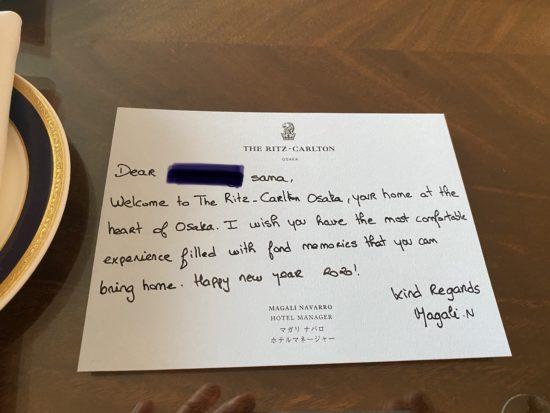 THE RITZ-CARLTON
OSAKA
Dear sama,
Welcome to The Ritz-Carlton Osaka, your home at the
heart of Osaka. I wish you have the most comfortable
experience filled with fond memories that you can
bring home. Happy new year 2020!
kind Regards
Magali.N
MAGALI NAVARRO
HOTEL MANAGER
マガリ ナバロ
ホテルマネージャー